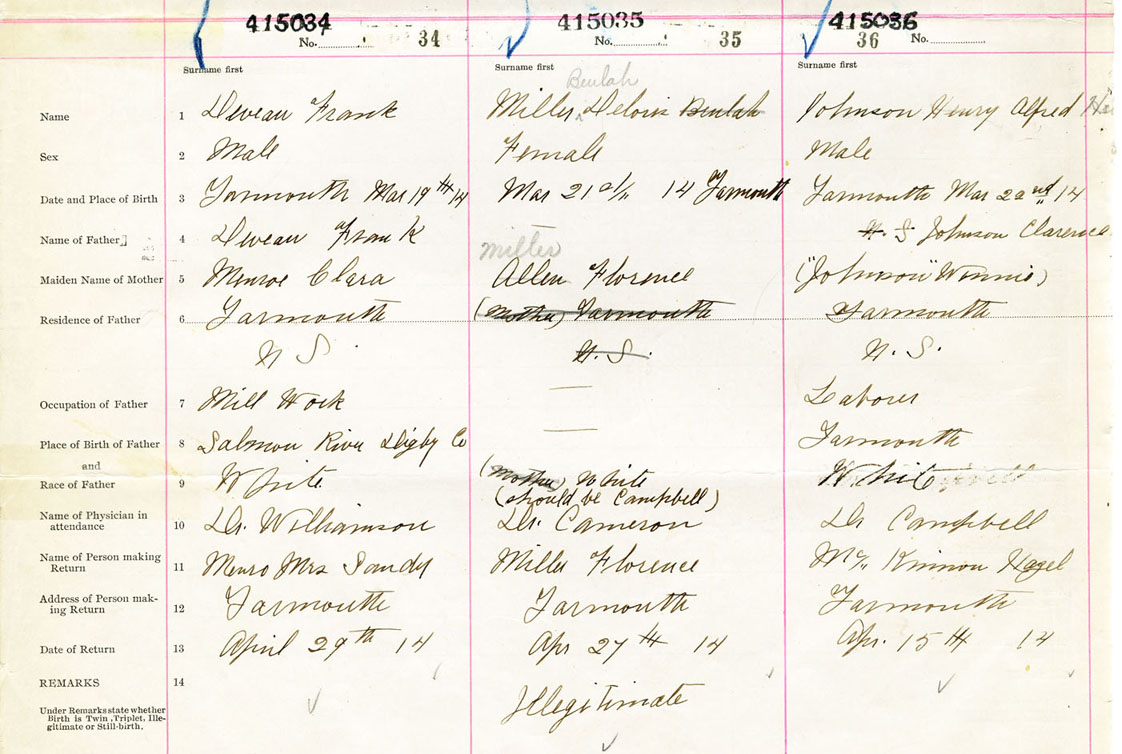 415034 415035 415036
No. 34 No. 35 36 No.
Surname first Surname first Surname first
Beulah
Name 1 Deveau Frank Miller, Deloris Beulah Johnson Henry Alfred
Sex 2 Male Female Male
Date and Place of Birth 3 Yarmouth Mar 19th /14 Mar 21st 14 Yarmouth Yarmouth Mar 22nd 14
Name of Father 4 Deveau Frank N. S Johnson Clarence
Miller
Maiden Name of Mother 5 Munroe Clara Allen Florence ("Johnson" Winnie)
Residence of Father 6 Yarmouth (Mother) Yarmouth Yarmouth
N S. N. S. N. S.
Occupation of Father 7 Mill Work — Laborer
Place of Birth of Father 8 Salmon River Digby Co — Yarmouth
and
Race of Father 9 White (Mother) White White
(should be Campbell)
Name of Physician in
attendance 10 Dr. Williamson Dr. Cameron Dr Campbell
Name of Person making
Return 11 Munro Mrs Sandy Miller Florence Mc Kinnon Hazel
Address of Person mak-
ing Return 12 Yarmouth Yarmouth Yarmouth
Date of Return 13 April 29th 14 Apr 27th 14 Apr. 15th 14
REMARKS 14
Under Remarks state whether
Birth is Twin, Triplet, Ille-
gitimate or Still-birth.
Illegitimate